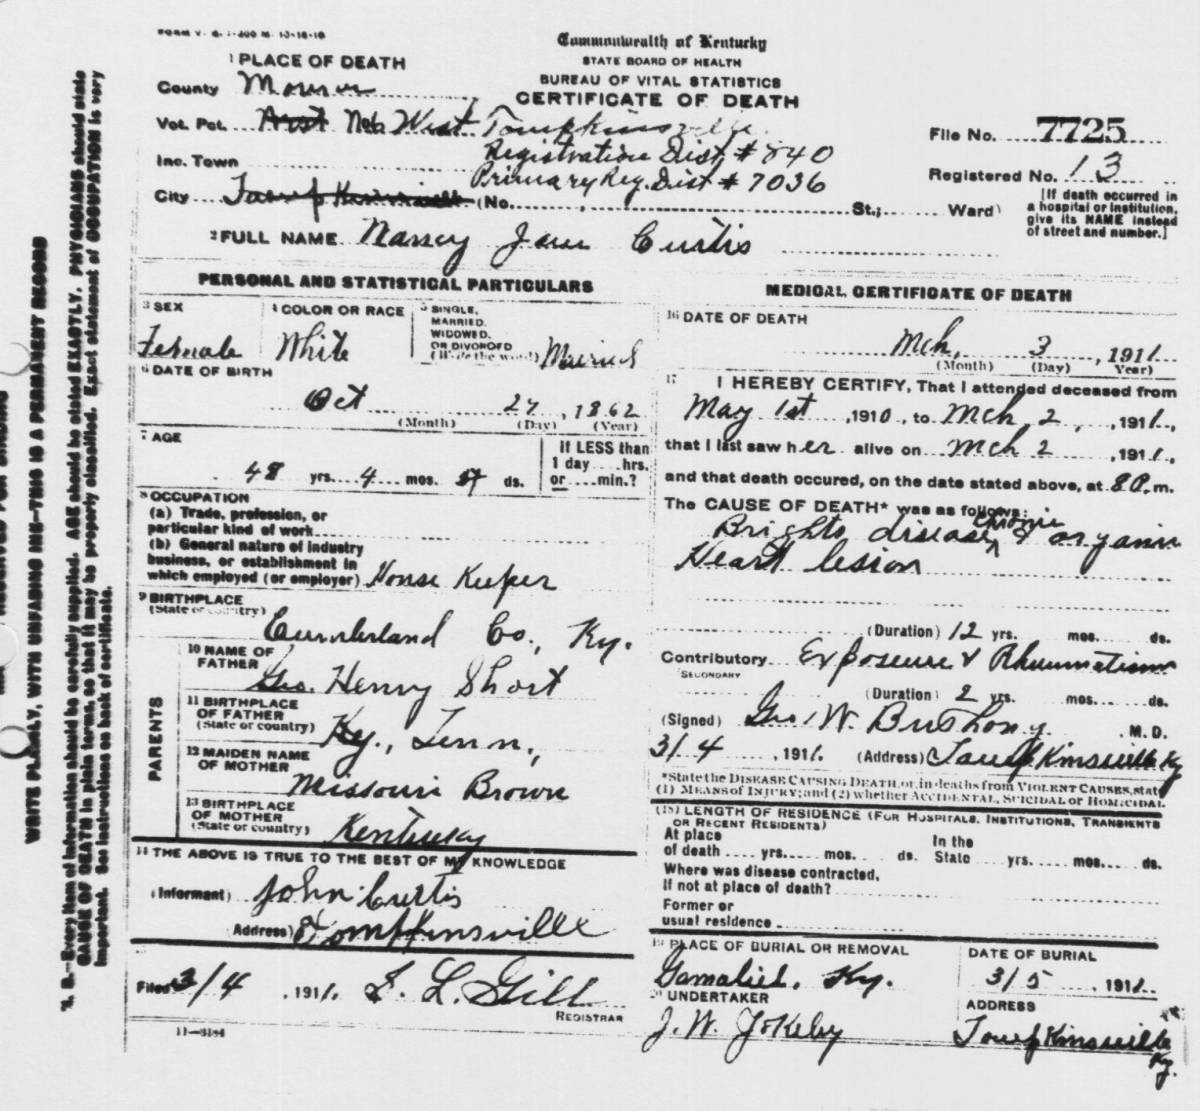 Commonwealth of Kentucky
STATE BOARD OF HEALTH
BUREAU OF VITAL STATISTICS
CERTIFICATE OF DEATH
1 PLACE OF DEATH
County Monroe
Vot. Pct. No 6 West Tompkinsville
Registration Dist. # 840
Inc. Town
Primary Reg. Dist # 7036
City (No. , St.; Ward)
File No. 7725
Registered No. 13
[If death occurred in
a hospital or institution,
give its NAME instead
of street and number.]
2 FULL NAME Nancy Jane Curtis
PERSONAL AND STATISTICAL PARTICULARS
3 SEX
Female
4 COLOR OR RACE
White
5 SINGLE,
MARRIED,
WIDOWED,
OR DIVORCED
(Write the word) Married
6 DATE OF BIRTH
Oct 27, 1862
(Month) (Day) (Year)
7 AGE
48 yrs. 4 mos. ds.
If LESS than
1 day .... hrs.
or .... min.?
8 OCCUPATION
(a) Trade, profession, or
particular kind of work
(b) General nature of industry
business, or establishment in
which employed (or employer) House Keeper
9 BIRTHPLACE
(State or country)
Cumberland Co., Ky.
PARENTS
10 NAME OF
FATHER
Geo. Henry Short
11 BIRTHPLACE
OF FATHER
(State or country)
Ky., Tenn,
12 MAIDEN NAME
OF MOTHER
Missouri Brown
13 BIRTHPLACE
OF MOTHER
(State or country)
Kentucky
14 THE ABOVE IS TRUE TO THE BEST OF MY KNOWLEDGE
(Informant) John Curtis
(Address) Tompkinsville
Filed 3/4, 1911. S. L. Gill
REGISTRAR
11-3184
MEDICAL CERTIFICATE OF DEATH
16 DATE OF DEATH
Mch, 3, 1911.
(Month) (Day) Year)
17 I HEREBY CERTIFY, That I attended deceased from
May 1st, 1910, to Mch, 2, 1911,
that I last saw her alive on Mch 2, 1911,
and that death occured, on the date stated above, at 8 P. m.
The CAUSE OF DEATH* was as follows:
Brights disease, chronic & organic
Heart lesion
(Duration) 12 yrs. mos. ds.
Contributory Exposure & Rheumatism
SECONDARY
(Duration) 2 yrs. mos. ds.
(Signed) Geo W. Bushong, M. D.
3/4, 1911. (Address) Tompkinsville Ky
*State the DISEASE CAUSING DEATH, or, in deaths from VIOLENT CAUSES, state
(1) MEANS OF INJURY; and (2) whether ACCIDENTAL, SUICIDAL or HOMICIDAL.
(18) LENGTH OF RESIDENCE (FOR HOSPITALS, INSTITUTIONS, TRANSIENTS
OR RECENT RESIDENTS)
At place
of death .... yrs. .... mos. .... ds.
In the
State .... yrs. .... mos. .... ds.
Where was disease contracted,
If not at place of death?
Former or
usual residence
19 PLACE OF BURIAL OR REMOVAL
Gamaliel, Ky.
DATE OF BURIAL
3/5, 1911.
20 UNDERTAKER
J. W. Jokeby
ADDRESS
Tompkinsville
Ky.
WRITE PLAINLY, WITH UNFADING INK—THIS IS A PERMANENT RECORD
N. B.—Every item of information should be carefully supplied. AGE should be stated EXACTLY. PHYSICIANS should state
CAUSE OF DEATH in plain terms, so that it may be properly classified. Exact statement of OCCUPATION is very
important. See instructions on back of certificate.